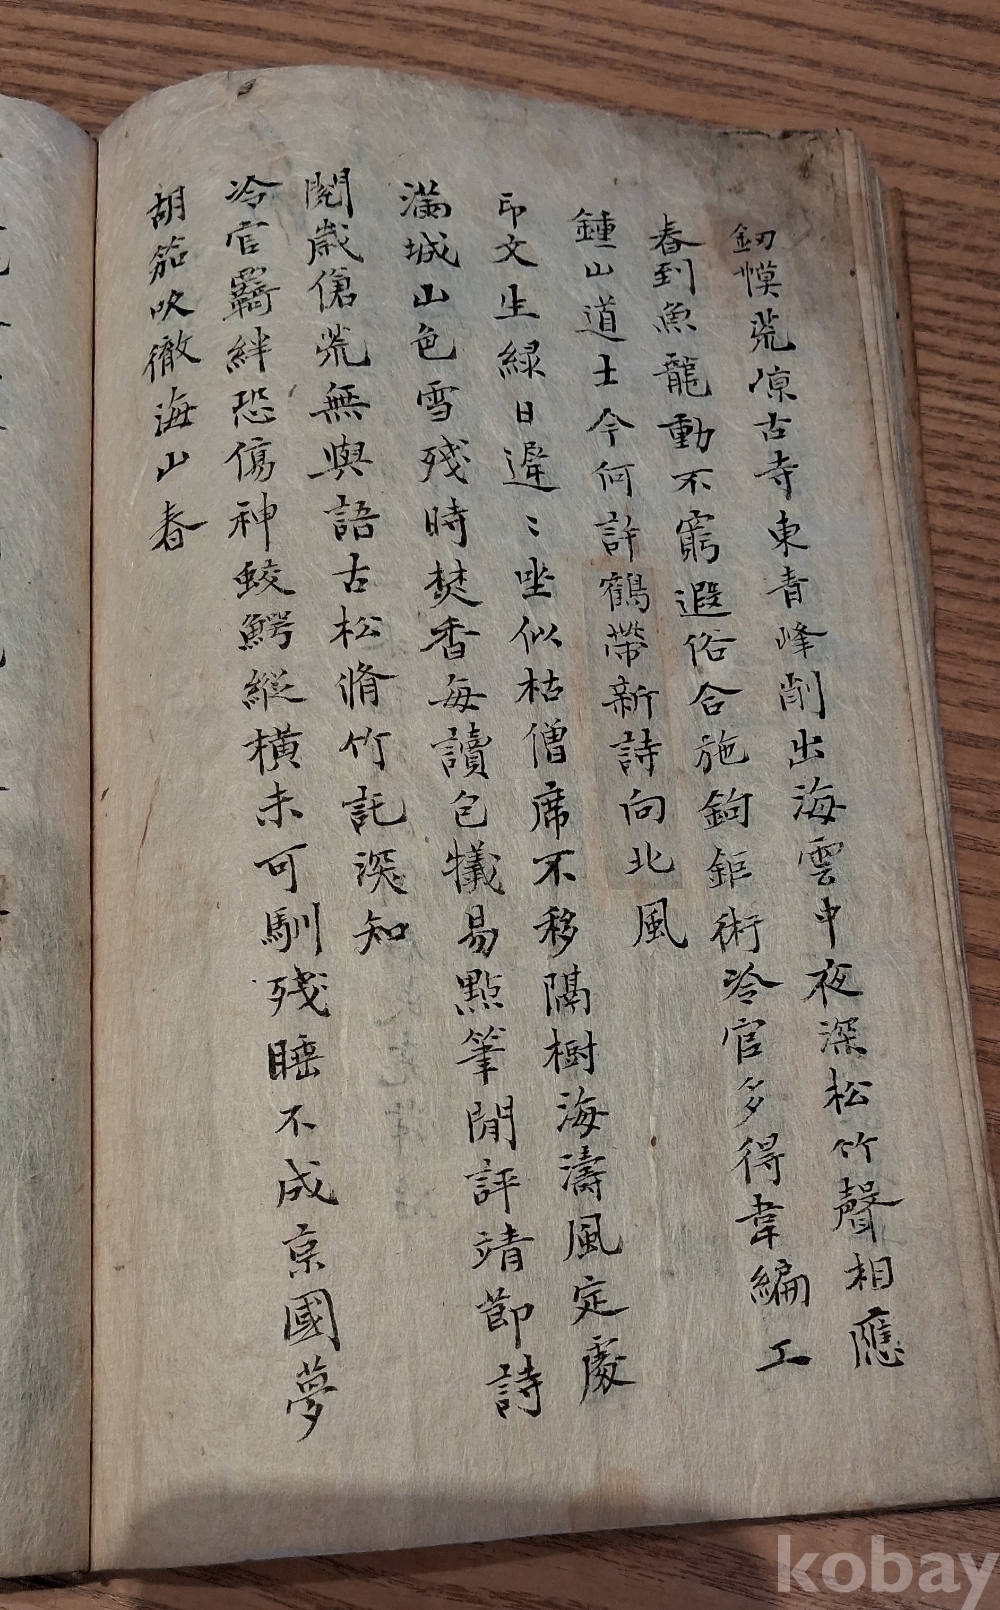 釰幙荒凉古寺東青峰削出海雲中夜深松竹聲相應
春到魚龍動不窮遐俗合施鉤鉅術冷官多得韋編工
鍾山道士今何許鶴帶新詩向北風
印文生綠日遲〻坐似枯僧席不移隔樹海濤風定處
滿城山色雪殘時焚香每讀包犧易點筆閒評靖節詩
閱歲傖荒無與語古松脩竹託深知
冷官羈絆恐傷神蛟鰐縱橫未可馴殘睡不成京國夢
胡笳吹徹海山春
kobay